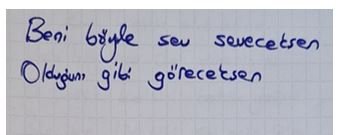 Beni böyle sev seveceksen
Olduğum gibi göreceksen